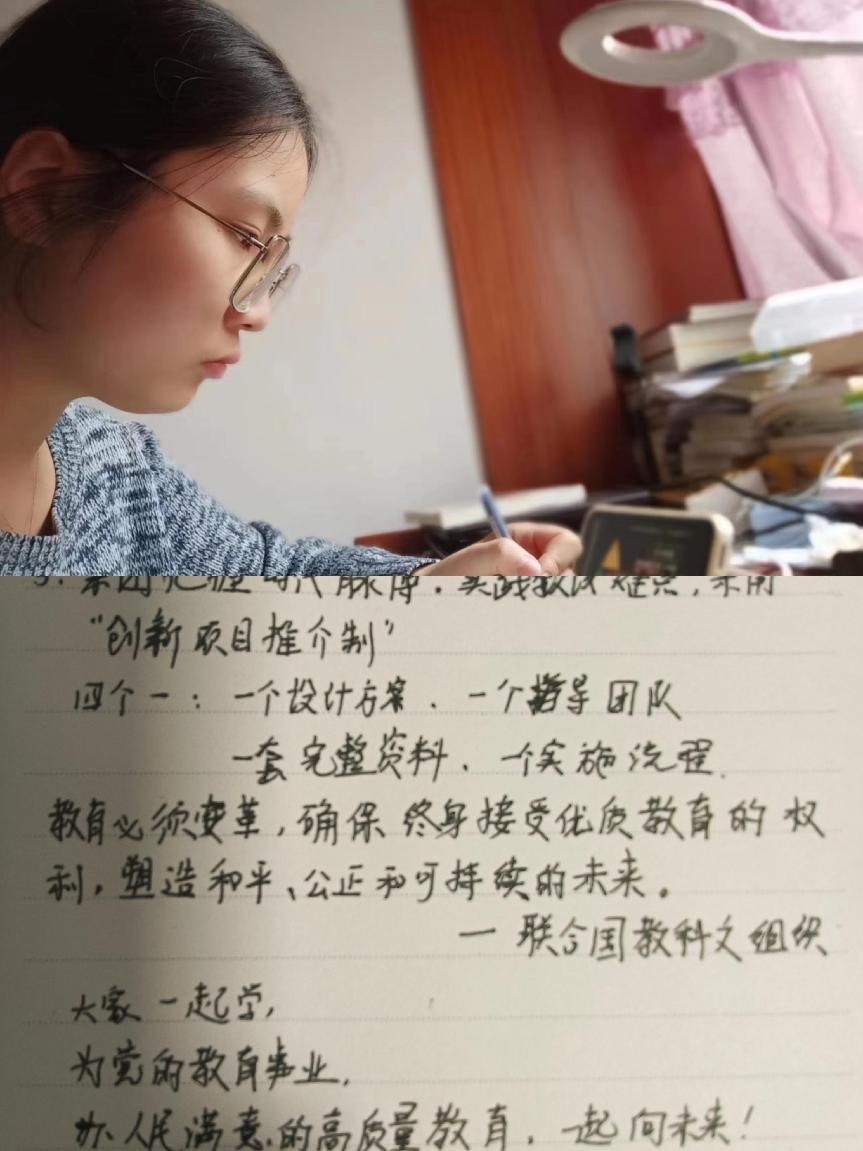 "创新项目推介制"
四个一：一个设计方案、一个指导团队
一套完整资料、一个实施流程.
教育必须变革,确保终身接受优质教育的权
利,塑造和平、公正和可持续的未来。
— 联合国教科文组织
大家一起学,
为党的教育事业,
办人民满意的高质量教育,一起向未来!